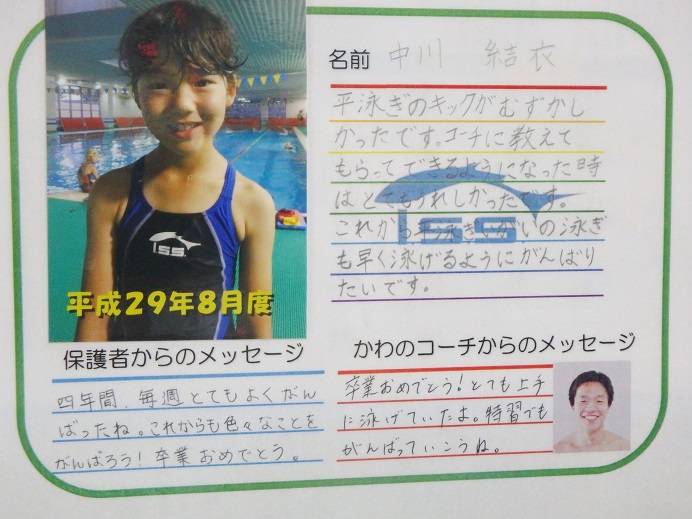 名前 中川 結衣
平泳ぎのキックがむずかし
かったです。コーチに教えて
もらってできるようになった時
はとてもうれしかったです。
これから平泳ぎいがいの泳ぎ
も早く泳げるようにがんばり
たいです。
ISS
iss
平成29年8月度
保護者からのメッセージ
四年間、毎週とてもよくがん
ばったね。これからも色々なことを
がんばろう！卒業おめでとう。
かわのコーチからのメッセージ
卒業おめでとう！とても上手
に泳げていたよ。特習でも
がんばっていこうね。